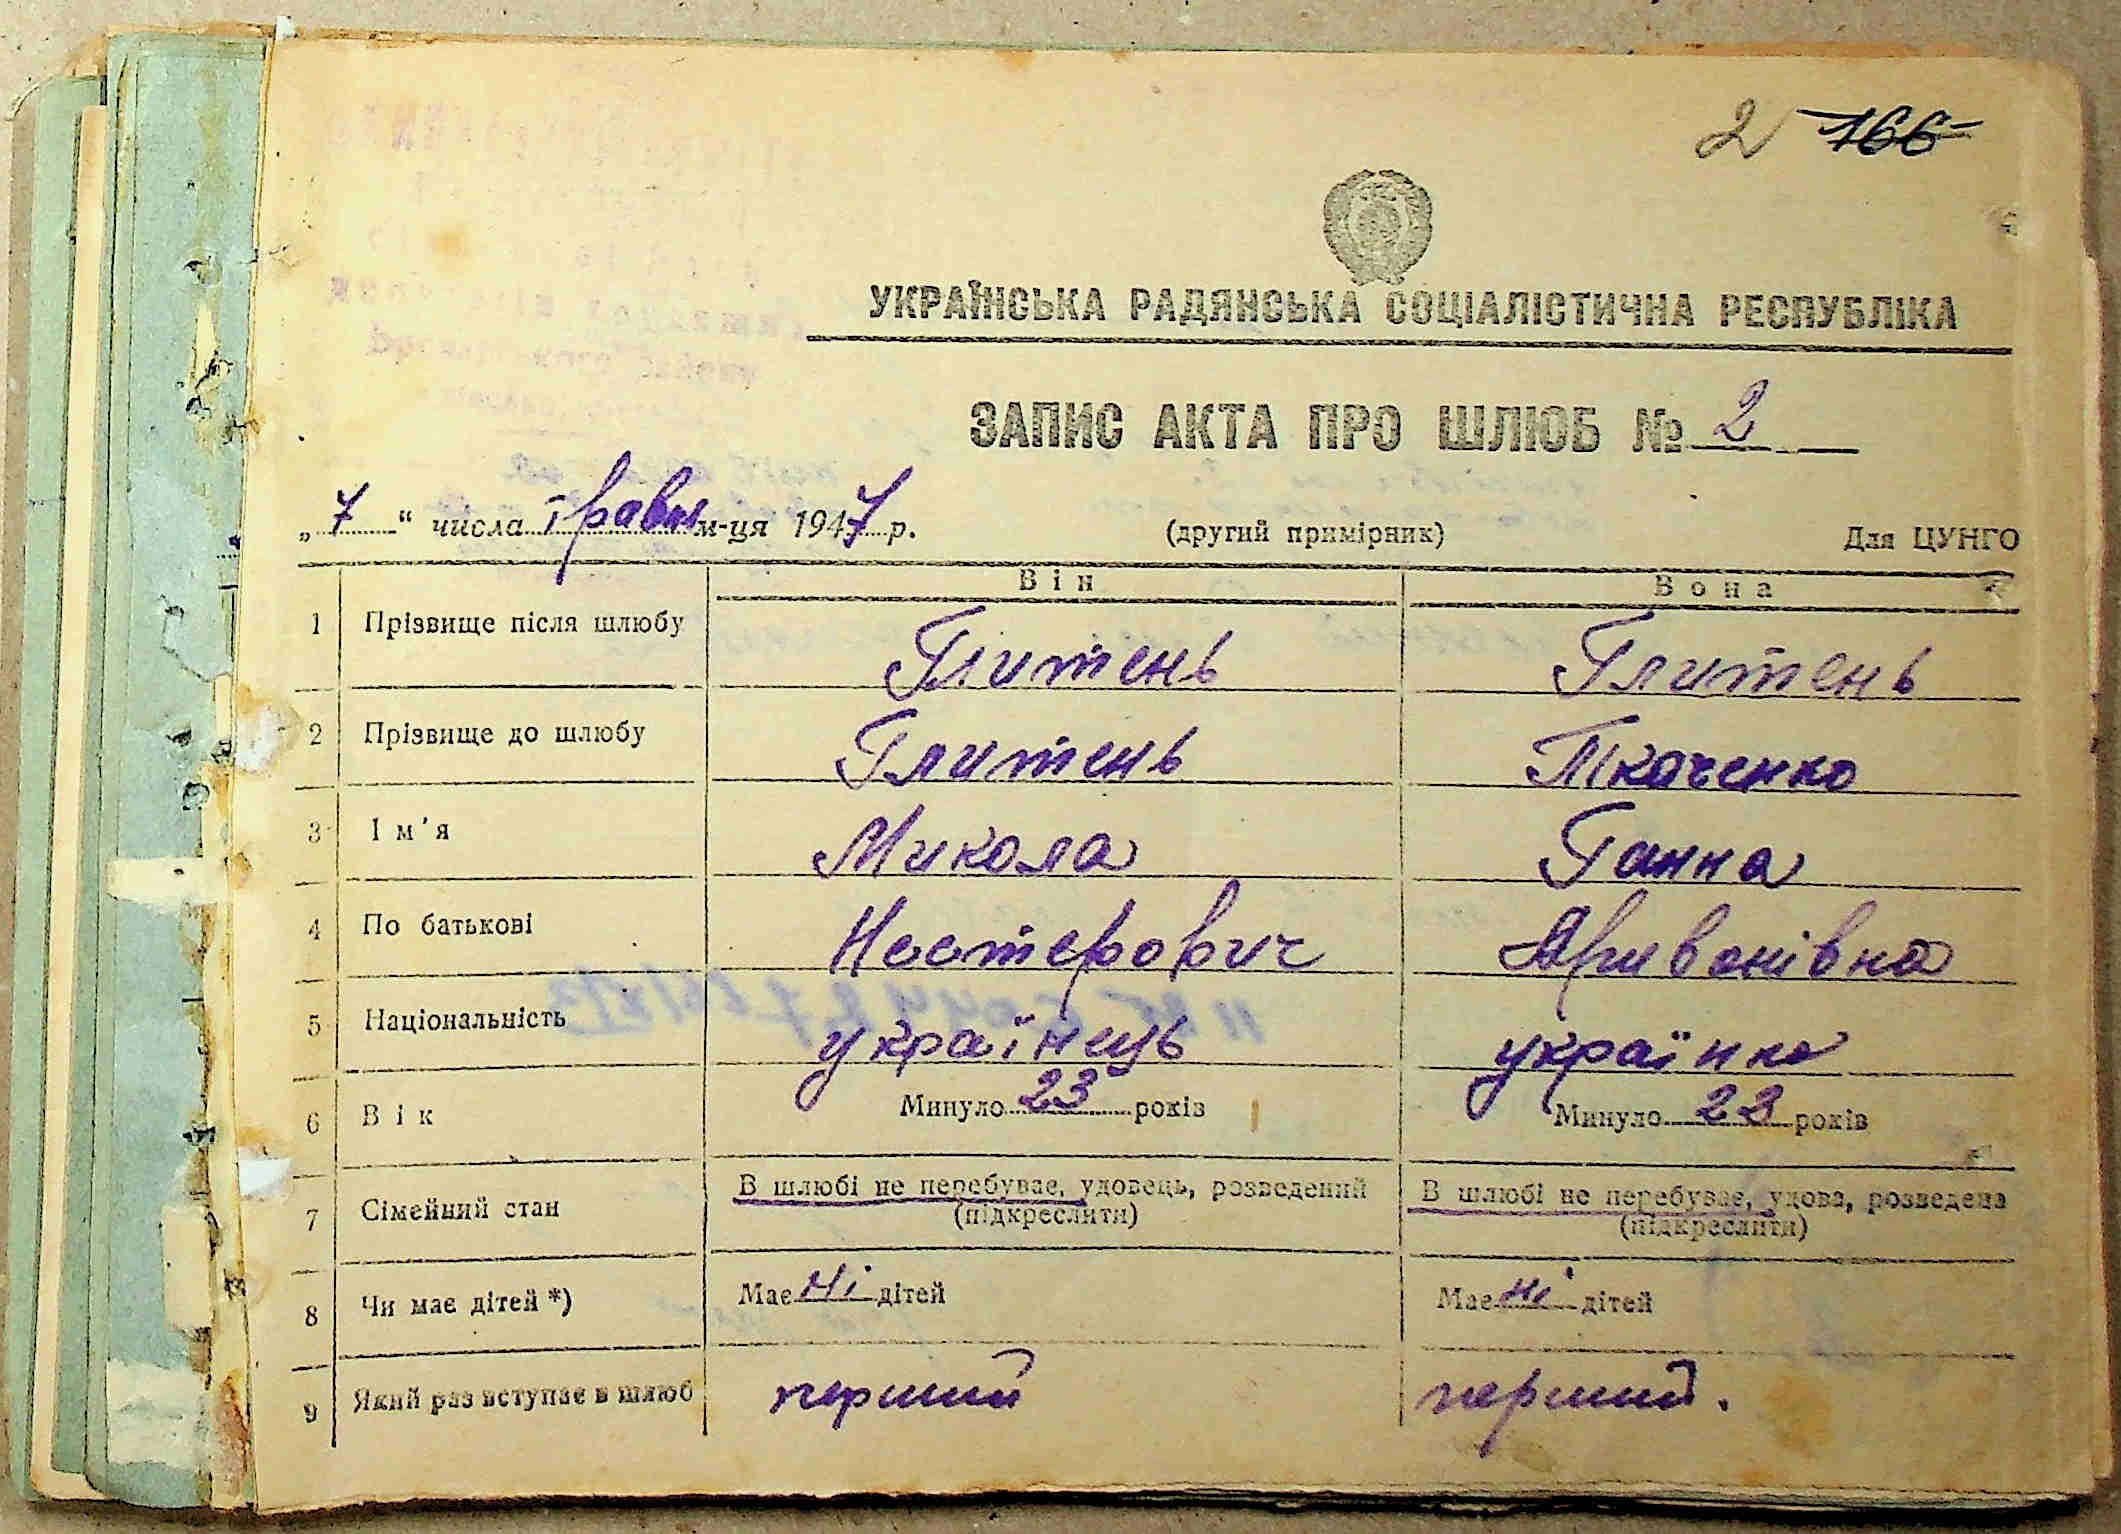 2 166
УКРАЇНСЬКА РАДЯНСЬКА СОЦІАЛІСТИЧНА РЕСПУБЛІКА
ЗАПИС АКТА ПРО ШЛЮБ № 2
„7“ числа травня м-ця 1947 р. (другий примірник) Для ЦУНГО
Він Вона
1 Прізвище після шлюбу Глитень Глитень
2 Прізвище до шлюбу Глитень Ткаченко
3 Ім'я Микола Ганна
4 По батькові Нестерович
5 Національність українець українка
6 Вік Минуло 23 років Минуло 22 років
7 Сімейний стан В шлюбі не перебуває, удовець, розведений В шлюбі не перебуває, удова, розведена
(підкреслити) (підкреслити)
8 Чи має дітей *) Має ні дітей Має ні дітей
9 Який раз вступає в шлюб перший перший.